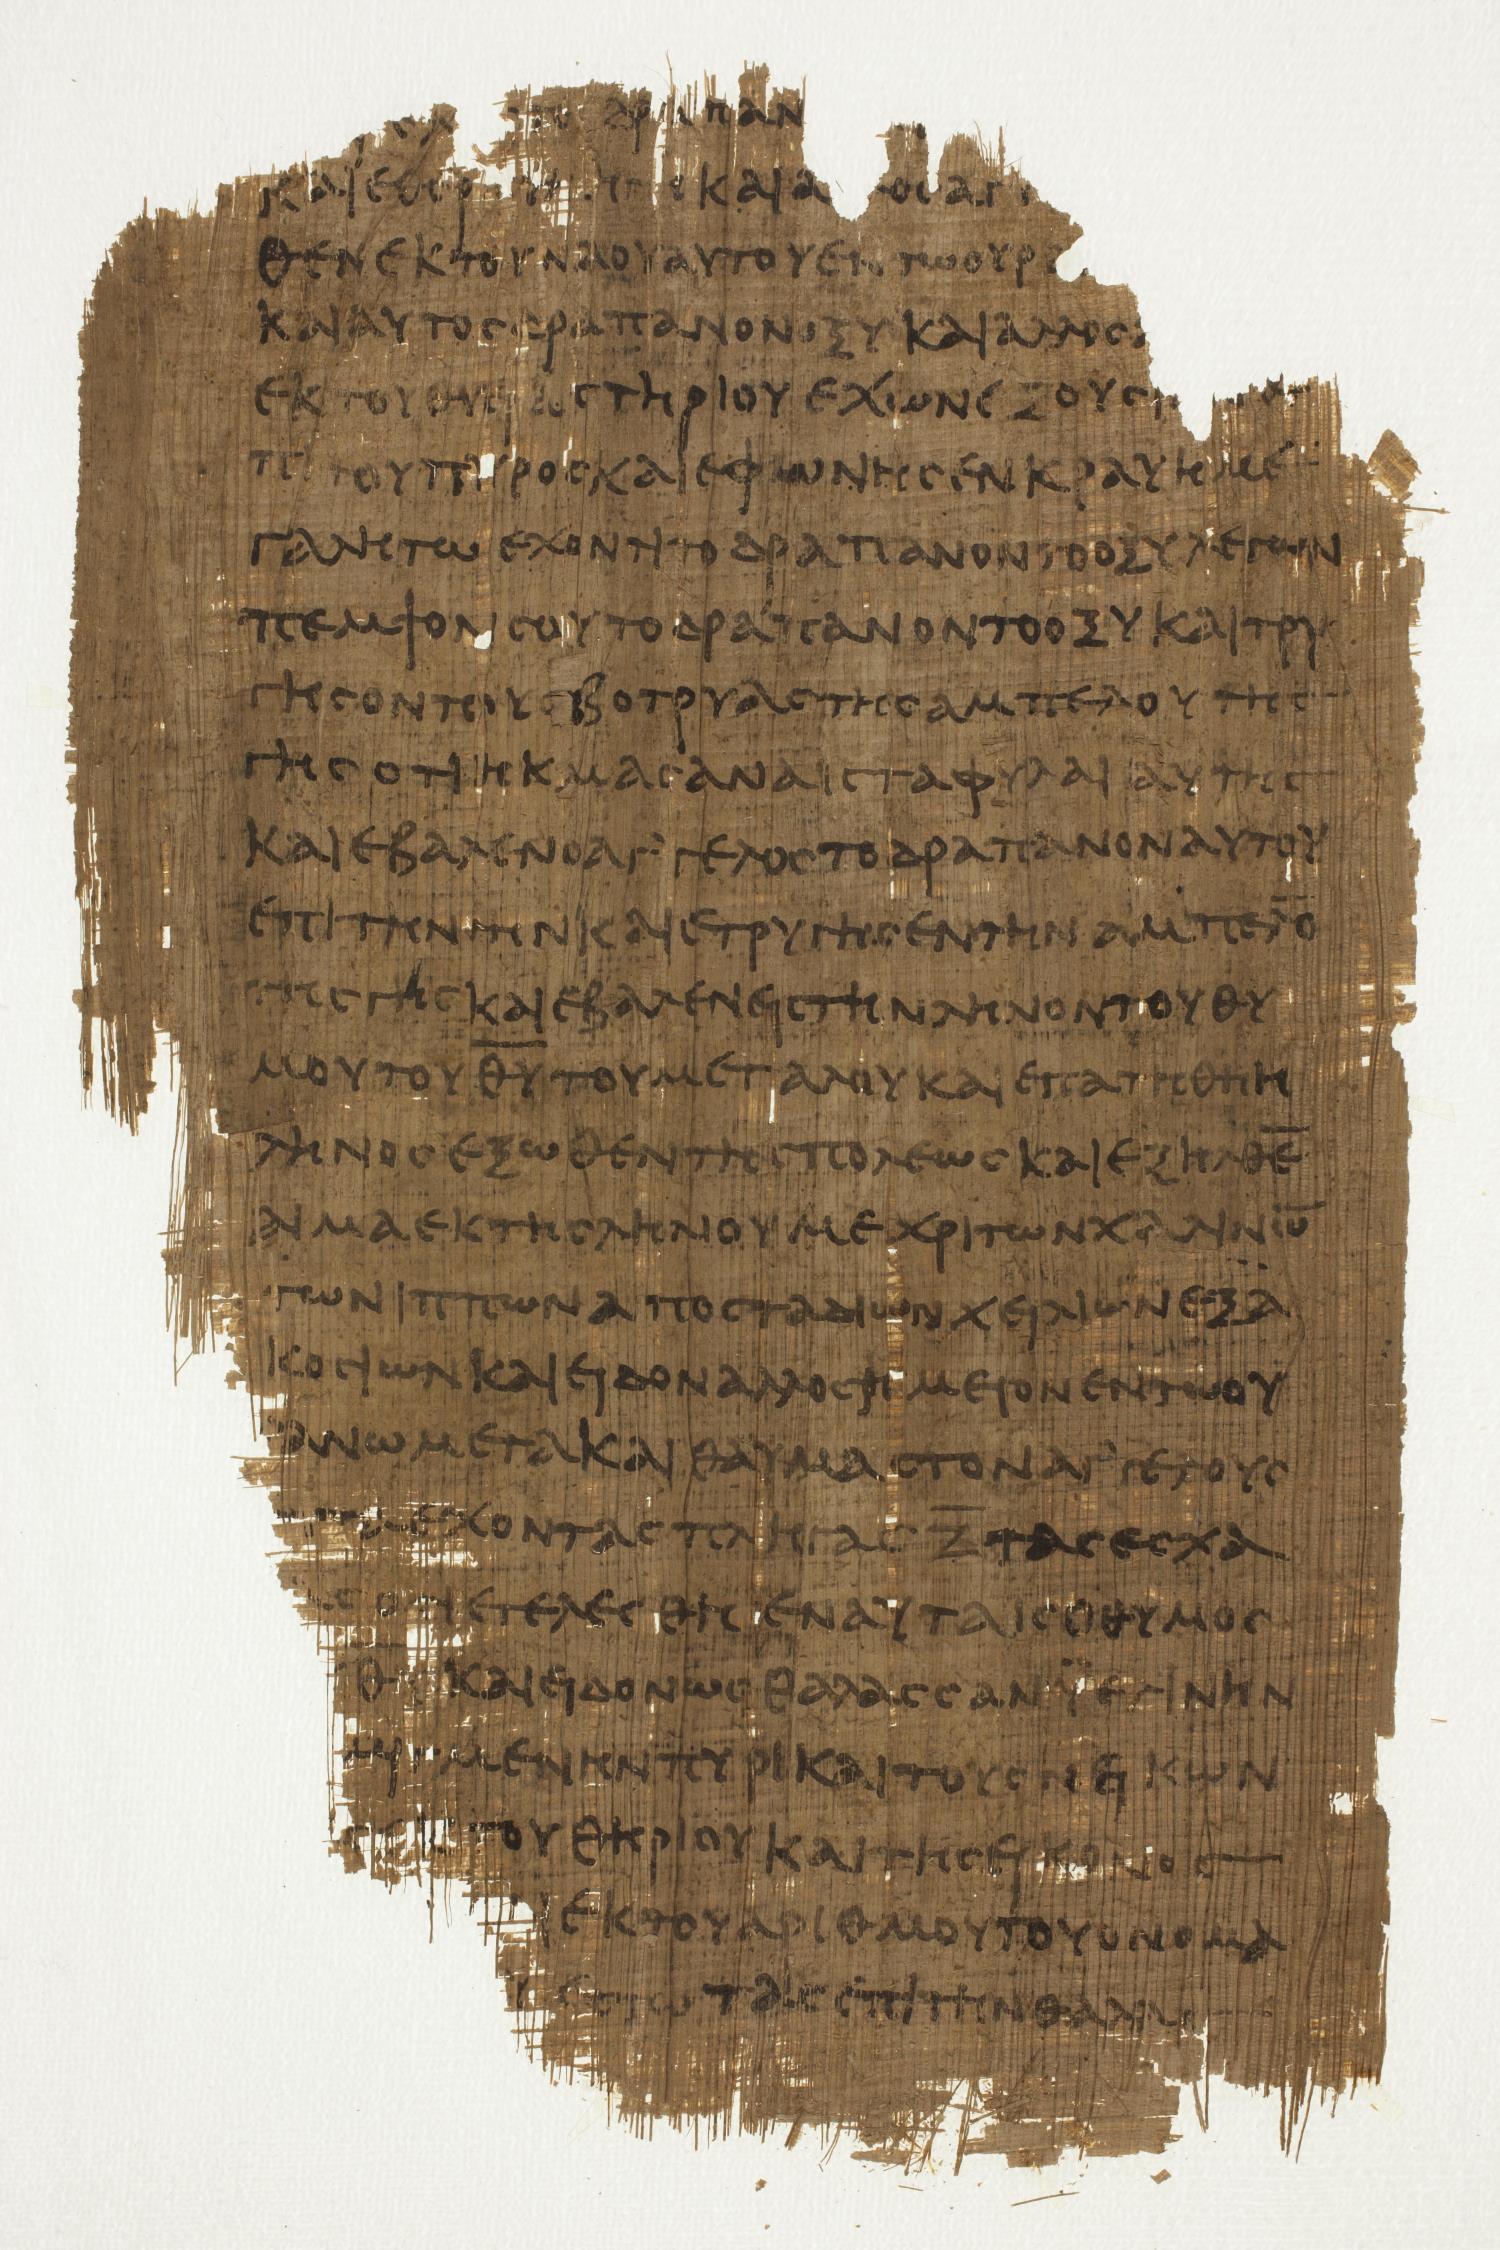 δραπαν
και εθερ και α αγ
θεν εκ του ναου αυτου εν τω ουρ
και αυτος δραπανον οξυ και αλλος
εκ του θυσιαστηριου εχων εξους
πι του πυρος και εφωνησεν κραυη με
γαλη τω εχοντι το δραπανον το οξυ λεγων
πεμψον σου το δραπανον το οξυ και τρυ
γησον τους βοτρυας της αμπελου της
γης οτι ηκμασαν αι σταφυλαι αυτης
και εβαλεν ο αγ'γελος το δραπανον αυτου
επι την γην και ετρυγησεν την αμπελο̅
της γης και εβαλεν εις την ληνον του θυ
μου του θ̅υ̅ του μεγαλου και επατηθη η
ληνος εξωθεν της πολεως και εξηλθε̅
αιμα εκ της ληνου μεχρι των χαλινω̅
των ιππων απο σταδιων χειλιων εξα
κοσιων και ειδον αλλο σημειον εν τω ου
ρανω μεγα και θαυμαστον αγ'γελους
εχοντας πληγας ζ̅ τας εσχα
ς οτι ετελεσθη εν αυταις ο θυμος
θ̅υ̅ και ειδον ως θαλασσαν ϋελινην
μεμιγμενην πυρι και τους νεικων
του θηριου και της εικονος
εκ του αριθμου του ονομα
εστωτας επι την θαλασσα